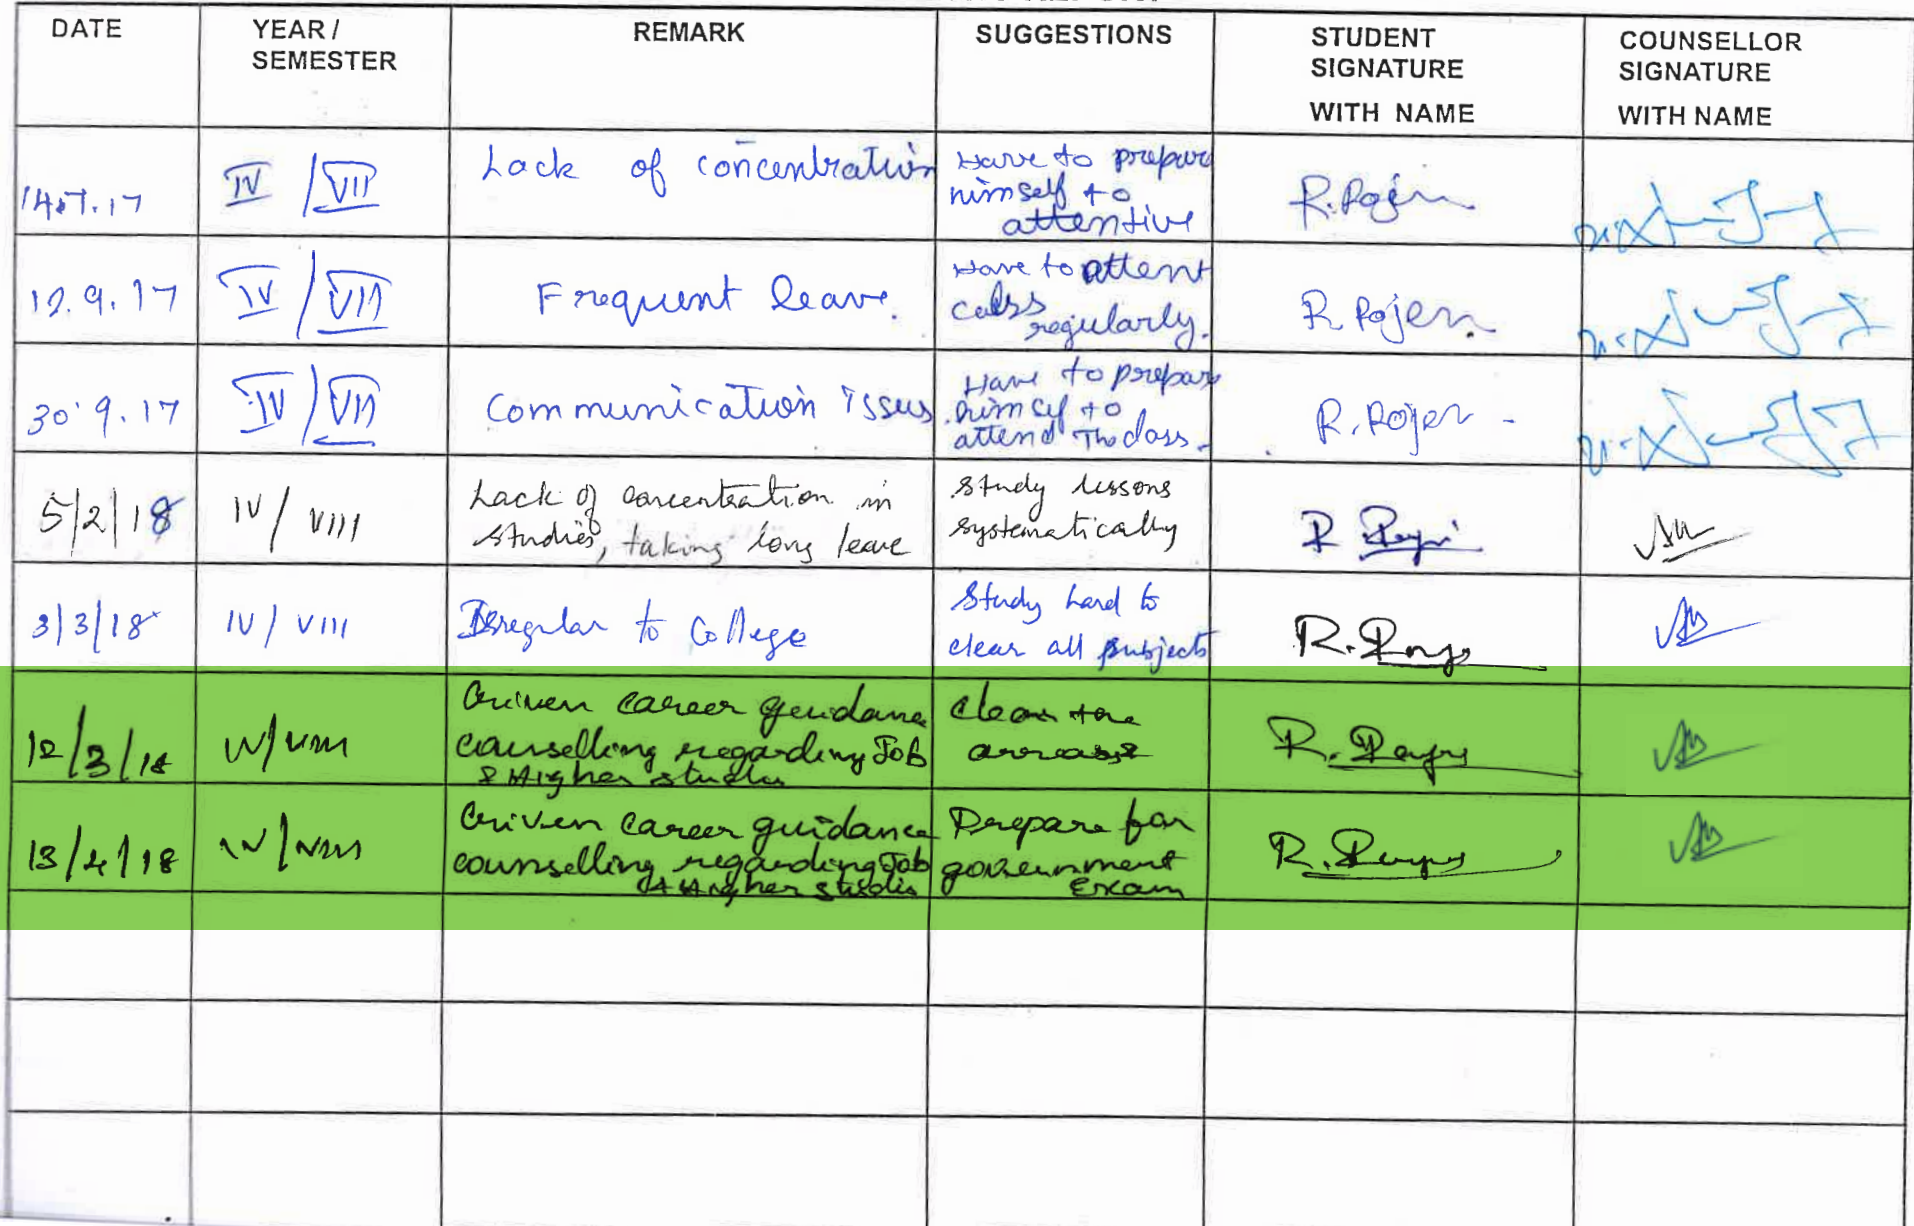 DATE
YEAR /
SEMESTER
REMARK
SUGGESTIONS
STUDENT
SIGNATURE
WITH NAME
COUNSELLOR
SIGNATURE
WITH NAME
14.7.17
IV / VII
Lack of concentration
Have to prepare
himself to
attentive
R.Rojen
12.9.17
IV / VII
Frequent leave.
Have to attent
calss
regularly.
R. Rojen.
30.9.17
IV / VII
Communication issus.
Have to prepare
himself to
attend The class.
R. Rojer
5/2/18
IV / VIII
Lack of concentration in
studies, taking long leave
Study lessons
systematically
3/3/18
IV / VIII
Irregular to College
Study hard to
clear all subjects
12/3/18
IV/VIII
Given career guidance
counselling regarding Job
& Higher studies
Clear the
arrears
13/4/18
IV/VIII
Given career guidance
counselling regarding Job
& Higher studies
Prepare for
government
Exam